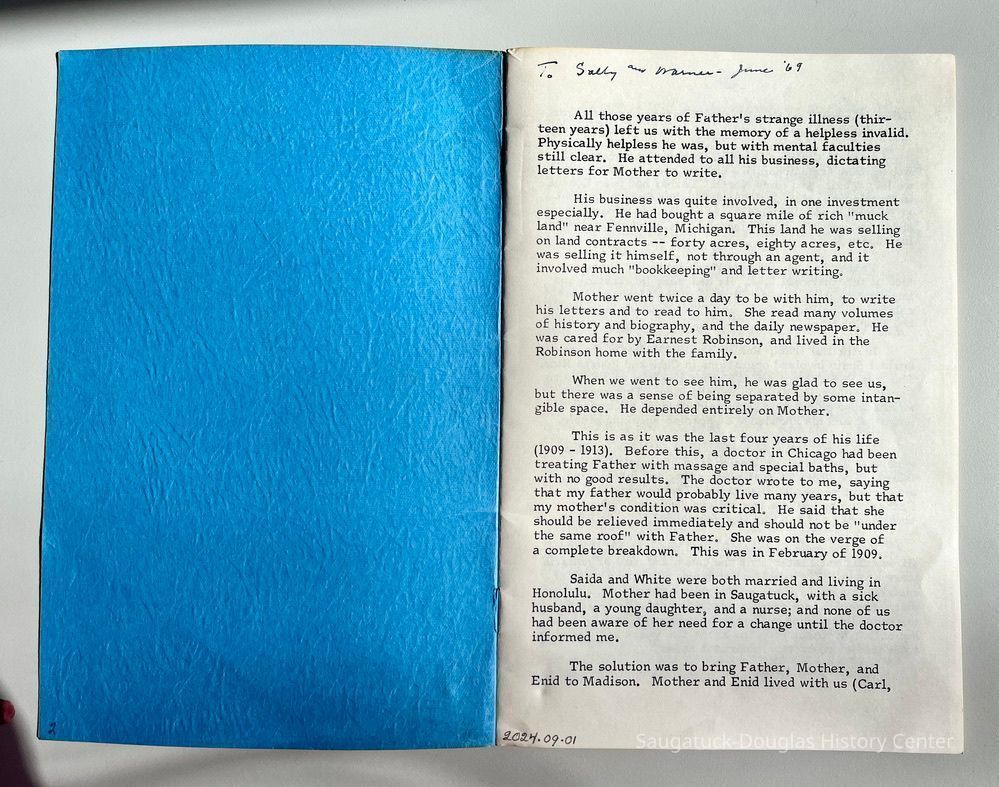 To Sally and Warner - June '69
All those years of Father's strange illness (thir-
teen years) left us with the memory of a helpless invalid.
Physically helpless he was, but with mental faculties
still clear. He attended to all his business, dictating
letters for Mother to write.
His business was quite involved, in one investment
especially. He had bought a square mile of rich "muck
land" near Fennville, Michigan. This land he was selling
on land contracts -- forty acres, eighty acres, etc. He
was selling it himself, not through an agent, and it
involved much "bookkeeping" and letter writing.
Mother went twice a day to be with him, to write
his letters and to read to him. She read many volumes
of history and biography, and the daily newspaper. He
was cared for by Earnest Robinson, and lived in the
Robinson home with the family.
When we went to see him, he was glad to see us,
but there was a sense of being separated by some intan-
gible space. He depended entirely on Mother.
This is as it was the last four years of his life
(1909 - 1913). Before this, a doctor in Chicago had been
treating Father with massage and special baths, but
with no good results. The doctor wrote to me, saying
that my father would probably live many years, but that
my mother's condition was critical. He said that she
should be relieved immediately and should not be "under
the same roof" with Father. She was on the verge of
a complete breakdown. This was in February of 1909.
Saida and White were both married and living in
Honolulu. Mother had been in Saugatuck, with a sick
husband, a young daughter, and a nurse; and none of us
had been aware of her need for a change until the doctor
informed me.
The solution was to bring Father, Mother, and
Enid to Madison. Mother and Enid lived with us (Carl,
2
2024.09.01
Saugatuck-Douglas History Center